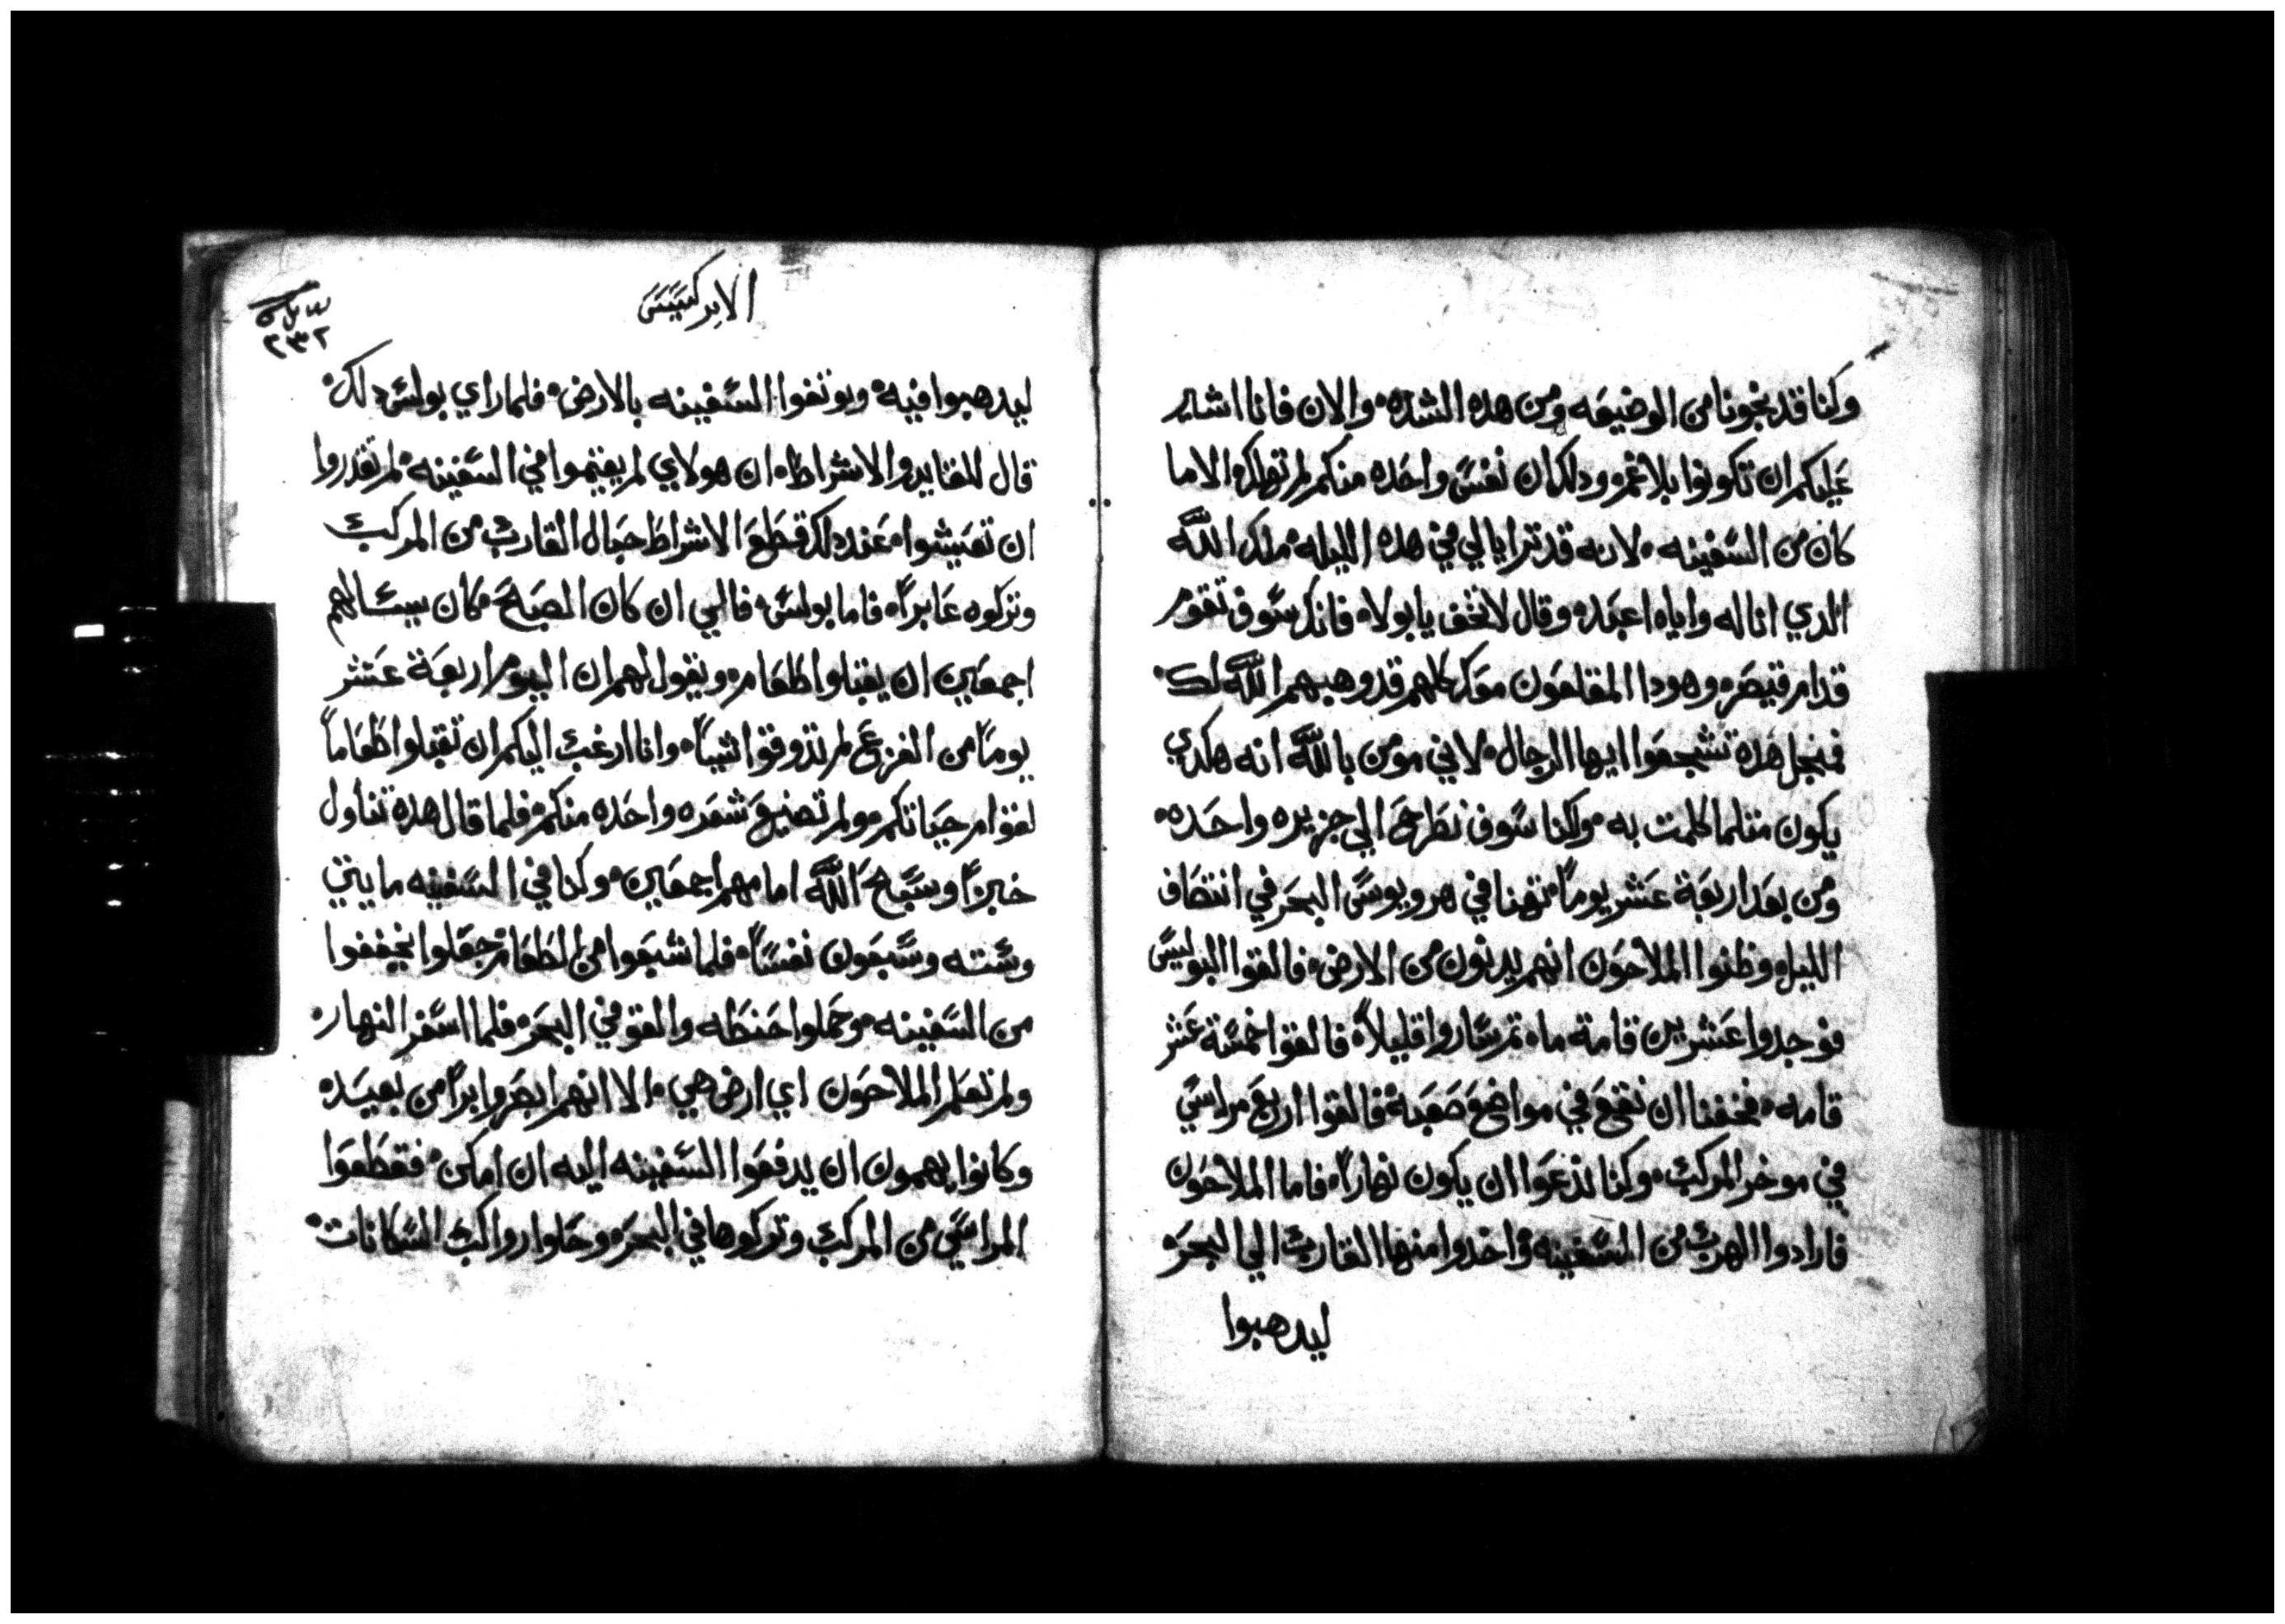 وكنا قد نجونا من الوضيعه ومن هده الشده والان فانا اشير
عليكم ان تكونوا بلا غم ودلك ان نفس واحده منكم لم تهلك الا ما
كان من السفينه لانه قد ترايا لي في هده الليله ملك الله
الدي انا له واياه اعبد وقال لا تخف يا بولا فانك سوف تقوم
قدام قيصر وهودا المقلعون معك كلهم قد وهبهم الله لك
فمنجل هدة تشجعوا ايها الرجال لاني مومن بالله انه هكدي
يكون متلما كلمت به ولكنا سوف نطرح الي جزيره واحده
ومن بعد اربعة عشر يوماً تهنا في هروبوس البحر في انتصاف
الليل وظنوا الملاحون انهم يدنون من الارض فالقوا البوليس
فوجدوا عشرين قامة ما تم ساروا قليلاً فالقوا خمسة عشر
قامه فخفنا ان نقع في مواضع صعبة فالقوا اربع مراسي
في موخر المركب وكنا ندعوا ان يكون نهاراً فاما الملاحون
فارادوا الهرب من السفينه واخدوا منها القارب الي البحر
ليدهبوا
الابركسيس
٢٣٢
ليدهبوا فيه ويوتقوا السفينه بالارض فلما راي بولس دلك
قال للقايد والاشراط ان هولاي لم يقيموا في السفينه لم تقدروا
ان تعيشوا عند دلك قطع الاشراط حبال القارب من المركب
وتركوه عابراً فاما بولس فالي ان كان الصبح كان يسالهم
اجمعين ان يقبلوا طعام ويقول لهم ان اليوم اربعة عشر
يوماً من الفزع لم تدوقوا شياً وانا ارغب اليكم ان تقبلوا طعاماً
لقوام حياتكم ولم تضيع شعره واحده منكم فلما قال هدة تناول
خبزاً وسبح الله امامهم اجمعين وكنا في السفينه مايتي
وسته وسبعون نفساً فلما شبعوا من الطعام جعلوا يخففوا
من السفينه وحملوا حنطه والقو في البحر فلما اسفر النهار
ولم تعلم الملاحون اي ارض هي الا انهم ابصروا براً من بعيده
وكانوا يهمون ان يدفعوا السفينه اليه ان امكن فقطعوا
المراسي من المركب وتركوها في البحر وحلوا رواكب السكانات